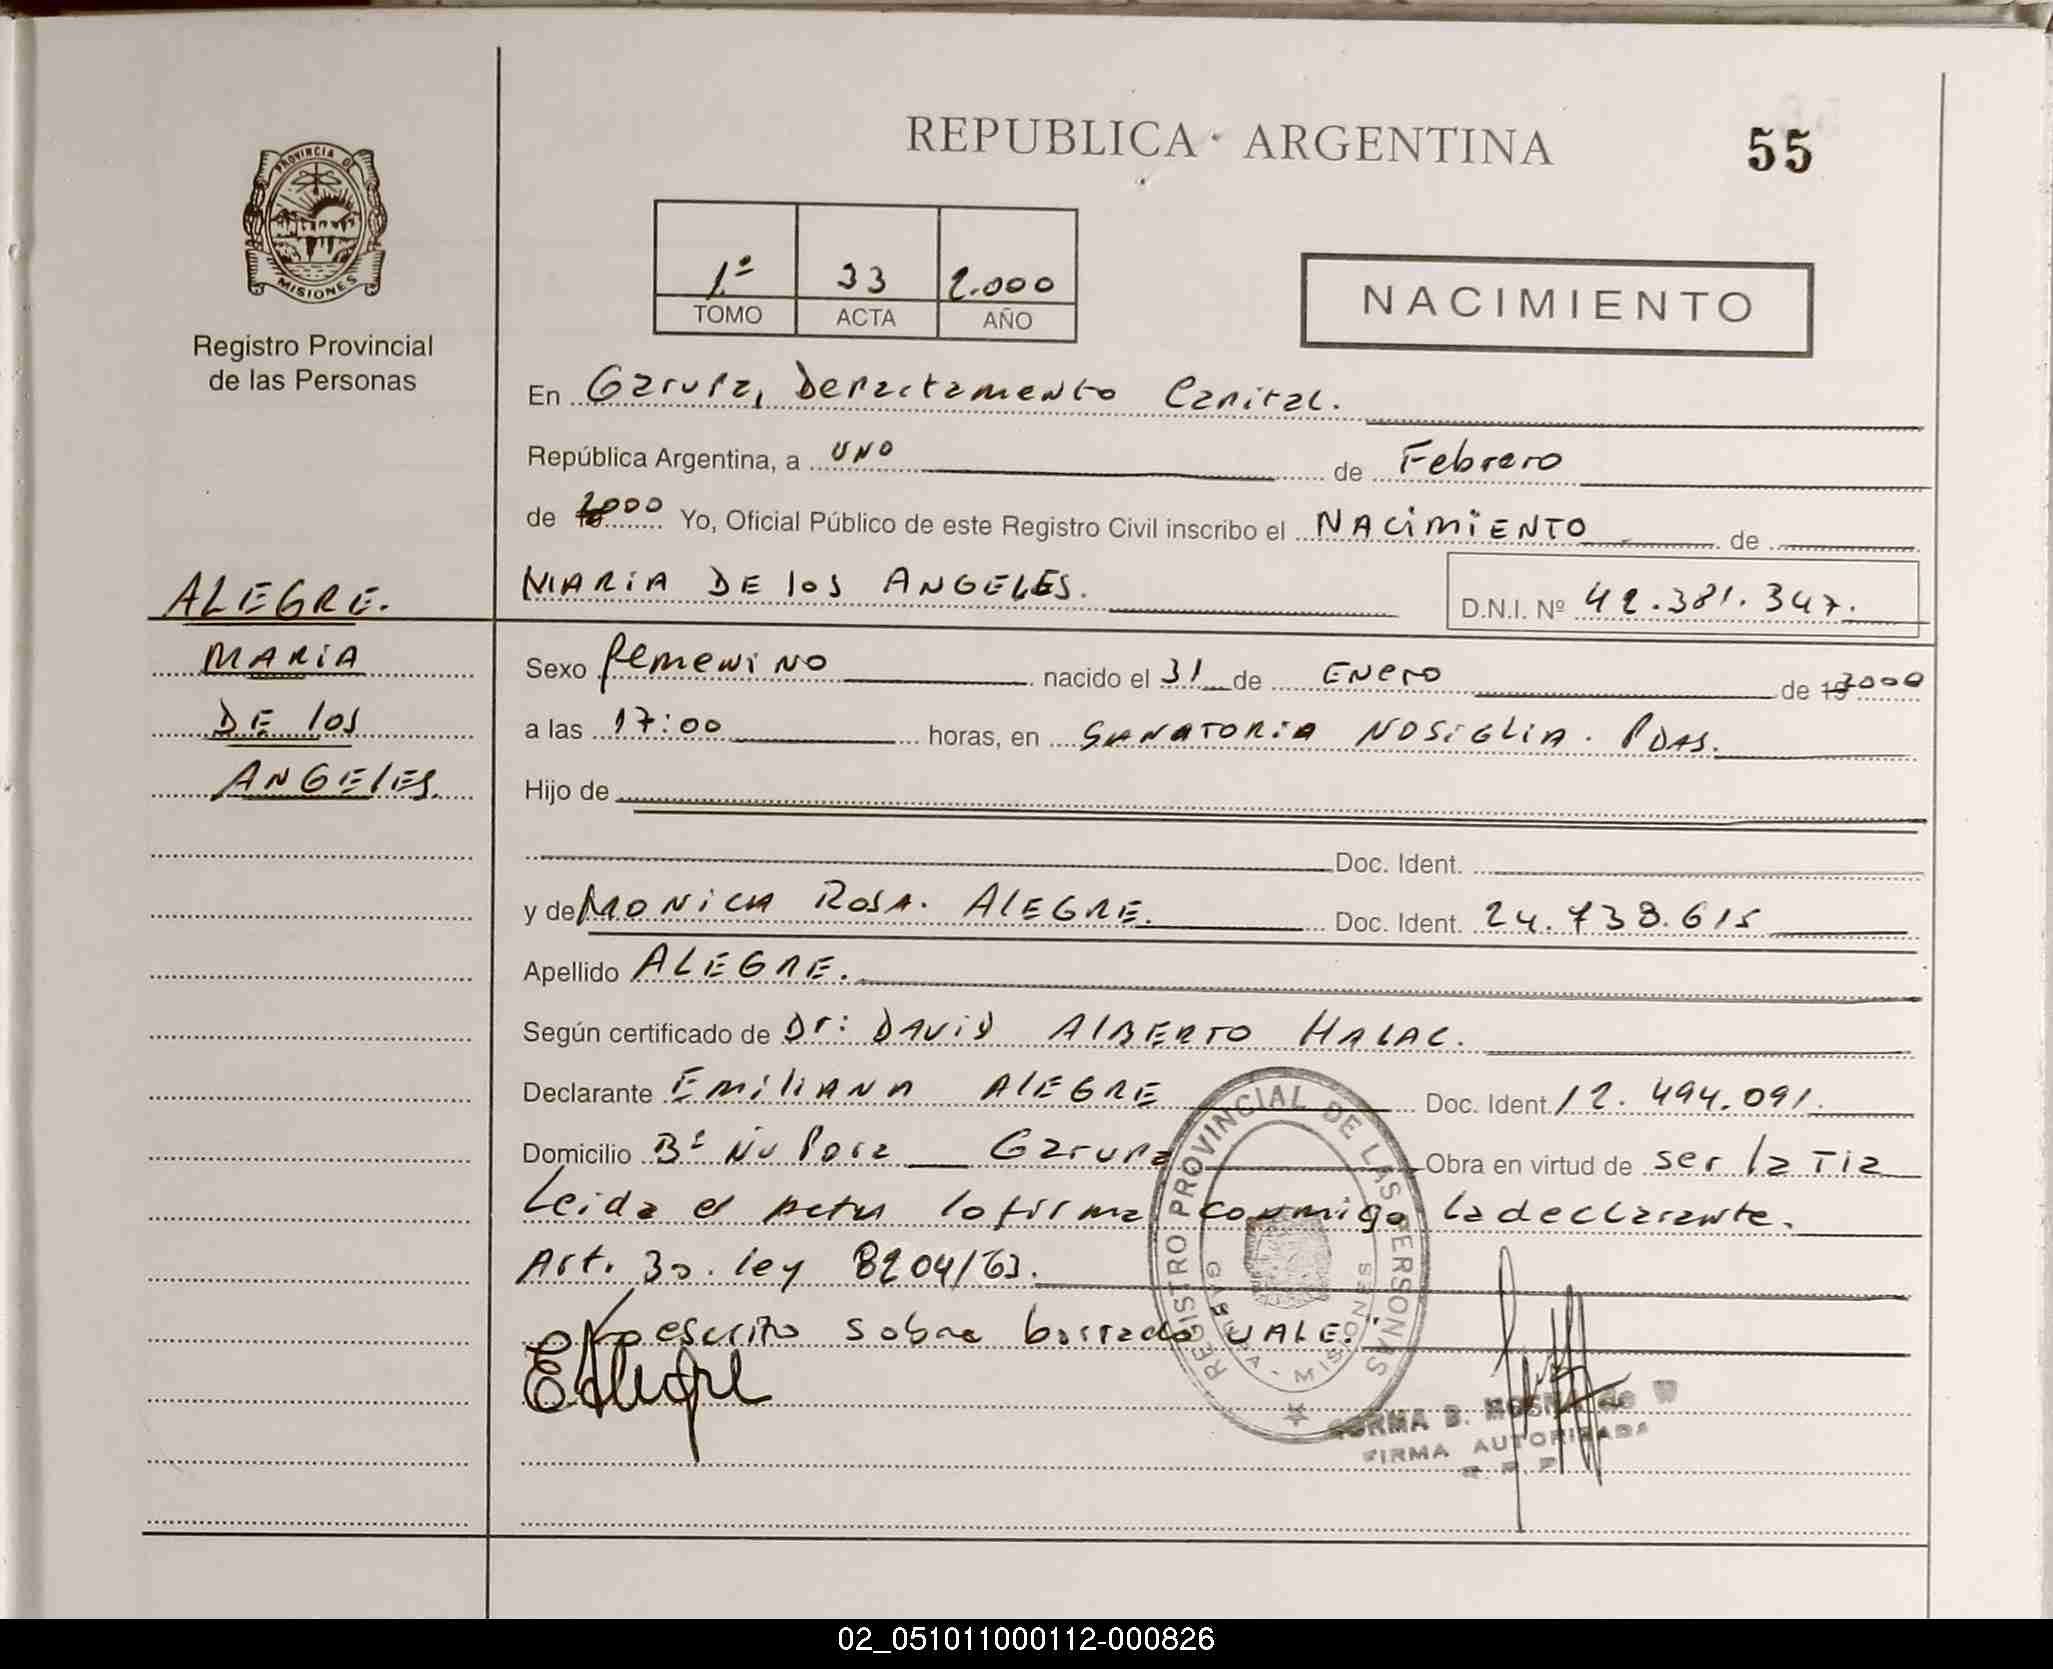 REPUBLICA ARGENTINA
55
PROVINCIA DE
MISIONES
Registro Provincial
de las Personas
1º 33 2.000
TOMO ACTA AÑO
NACIMIENTO
En Garupa, Departamento Capital.
República Argentina, a uno de Febrero
de 2000 Yo, Oficial Público de este Registro Civil inscribo el NACIMIENTO de
MARIA DE los ANGELES. D.N.I. Nº 42.381.347.
ALEGRE.
MARIA
DE los
ANGELES.
Sexo femenino nacido el 31 de ENERO de 2000
a las 17:00 horas, en SANATORIO NOSIGLIA. PDAS.
Hijo de
Doc. Ident.
y de MONICA ROSA. ALEGRE. Doc. Ident. 24.738.615
Apellido ALEGRE.
Según certificado de Dr: DAVID ALBERTO HALAC.
Declarante EMILIANA ALEGRE Doc. Ident. 12.494.091.
Domicilio Bº Ñu Pora Garupa Obra en virtud de ser la Tia
Leida el acta la firma conmigo la declarante.
Art. 30. ley 8204/63.
escrito sobre borrado VALE."
EAlegre
REGISTRO PROVINCIAL DE LAS PERSONAS
GARUPA - MISIONES
NORMA B.
FIRMA AUTORIZADA
02_051011000112-000826